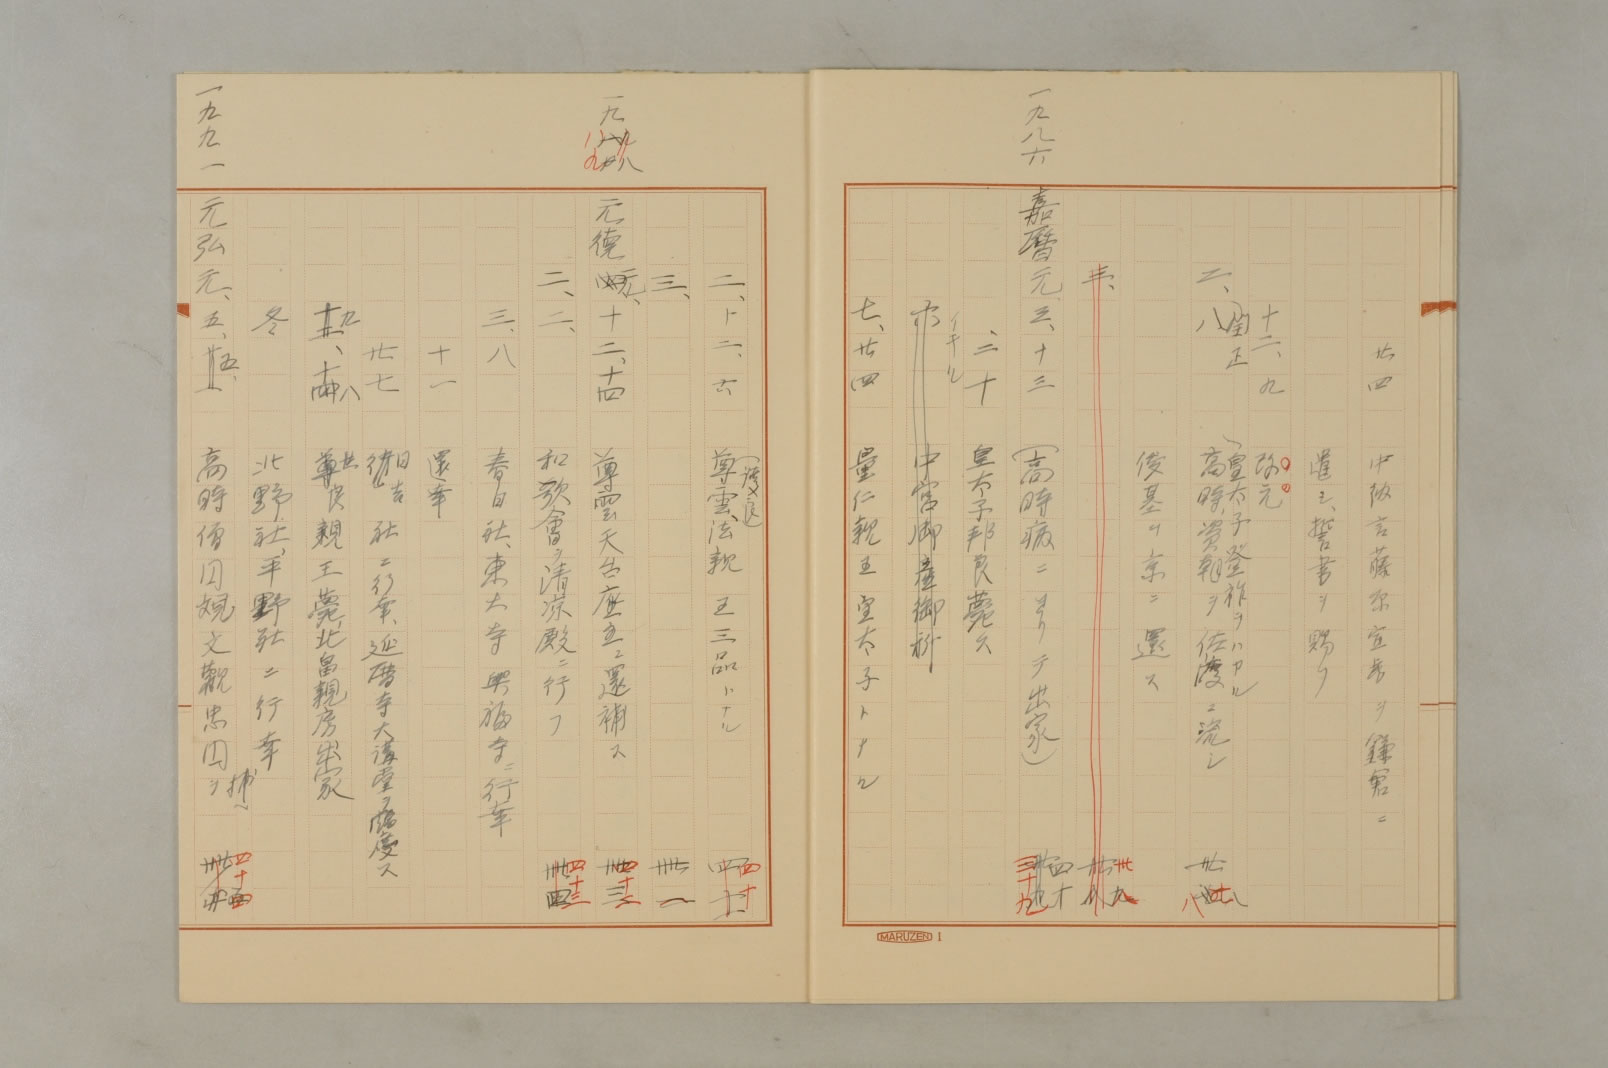 廿四 中納言藤原宣房ヲ鎌倉ニ
遣シ、誓書ヲ賜フ
十二、九 改元
二、八 (閏正
(皇太子登祚ヲハカル
高時、資朝ヲ佐渡ニ流シ
俊基ヲ京ニ還ス
一九八六 嘉暦元、三、十三 (高時病ニヨリテ出家)
四十
三、二十 皇太子邦良薨ス
中宮御産御祈
イキル
七、廿四 量仁親王皇太子トナル
MARUZEN 1
二、十二、六 尊雲法親王三品トナル
(護良)
四十
三、
卅一
一九八九 元徳元、十二、十四 尊雲天台座主ニ還補ス
二、二、 和歌會ヲ清凉殿ニ行フ
四十三
三、八 春日社、東大寺興福寺ニ行幸
十一 還幸
廿七 日吉社ニ行幸、延暦寺大講堂ヲ慶ス
九、十八 世良親王薨、北畠親房出家
冬 北野社、平野社ニ行幸
一九九一 元弘元、五、五、 高時僧円観文觀忠円ヲ捕フ
四十四